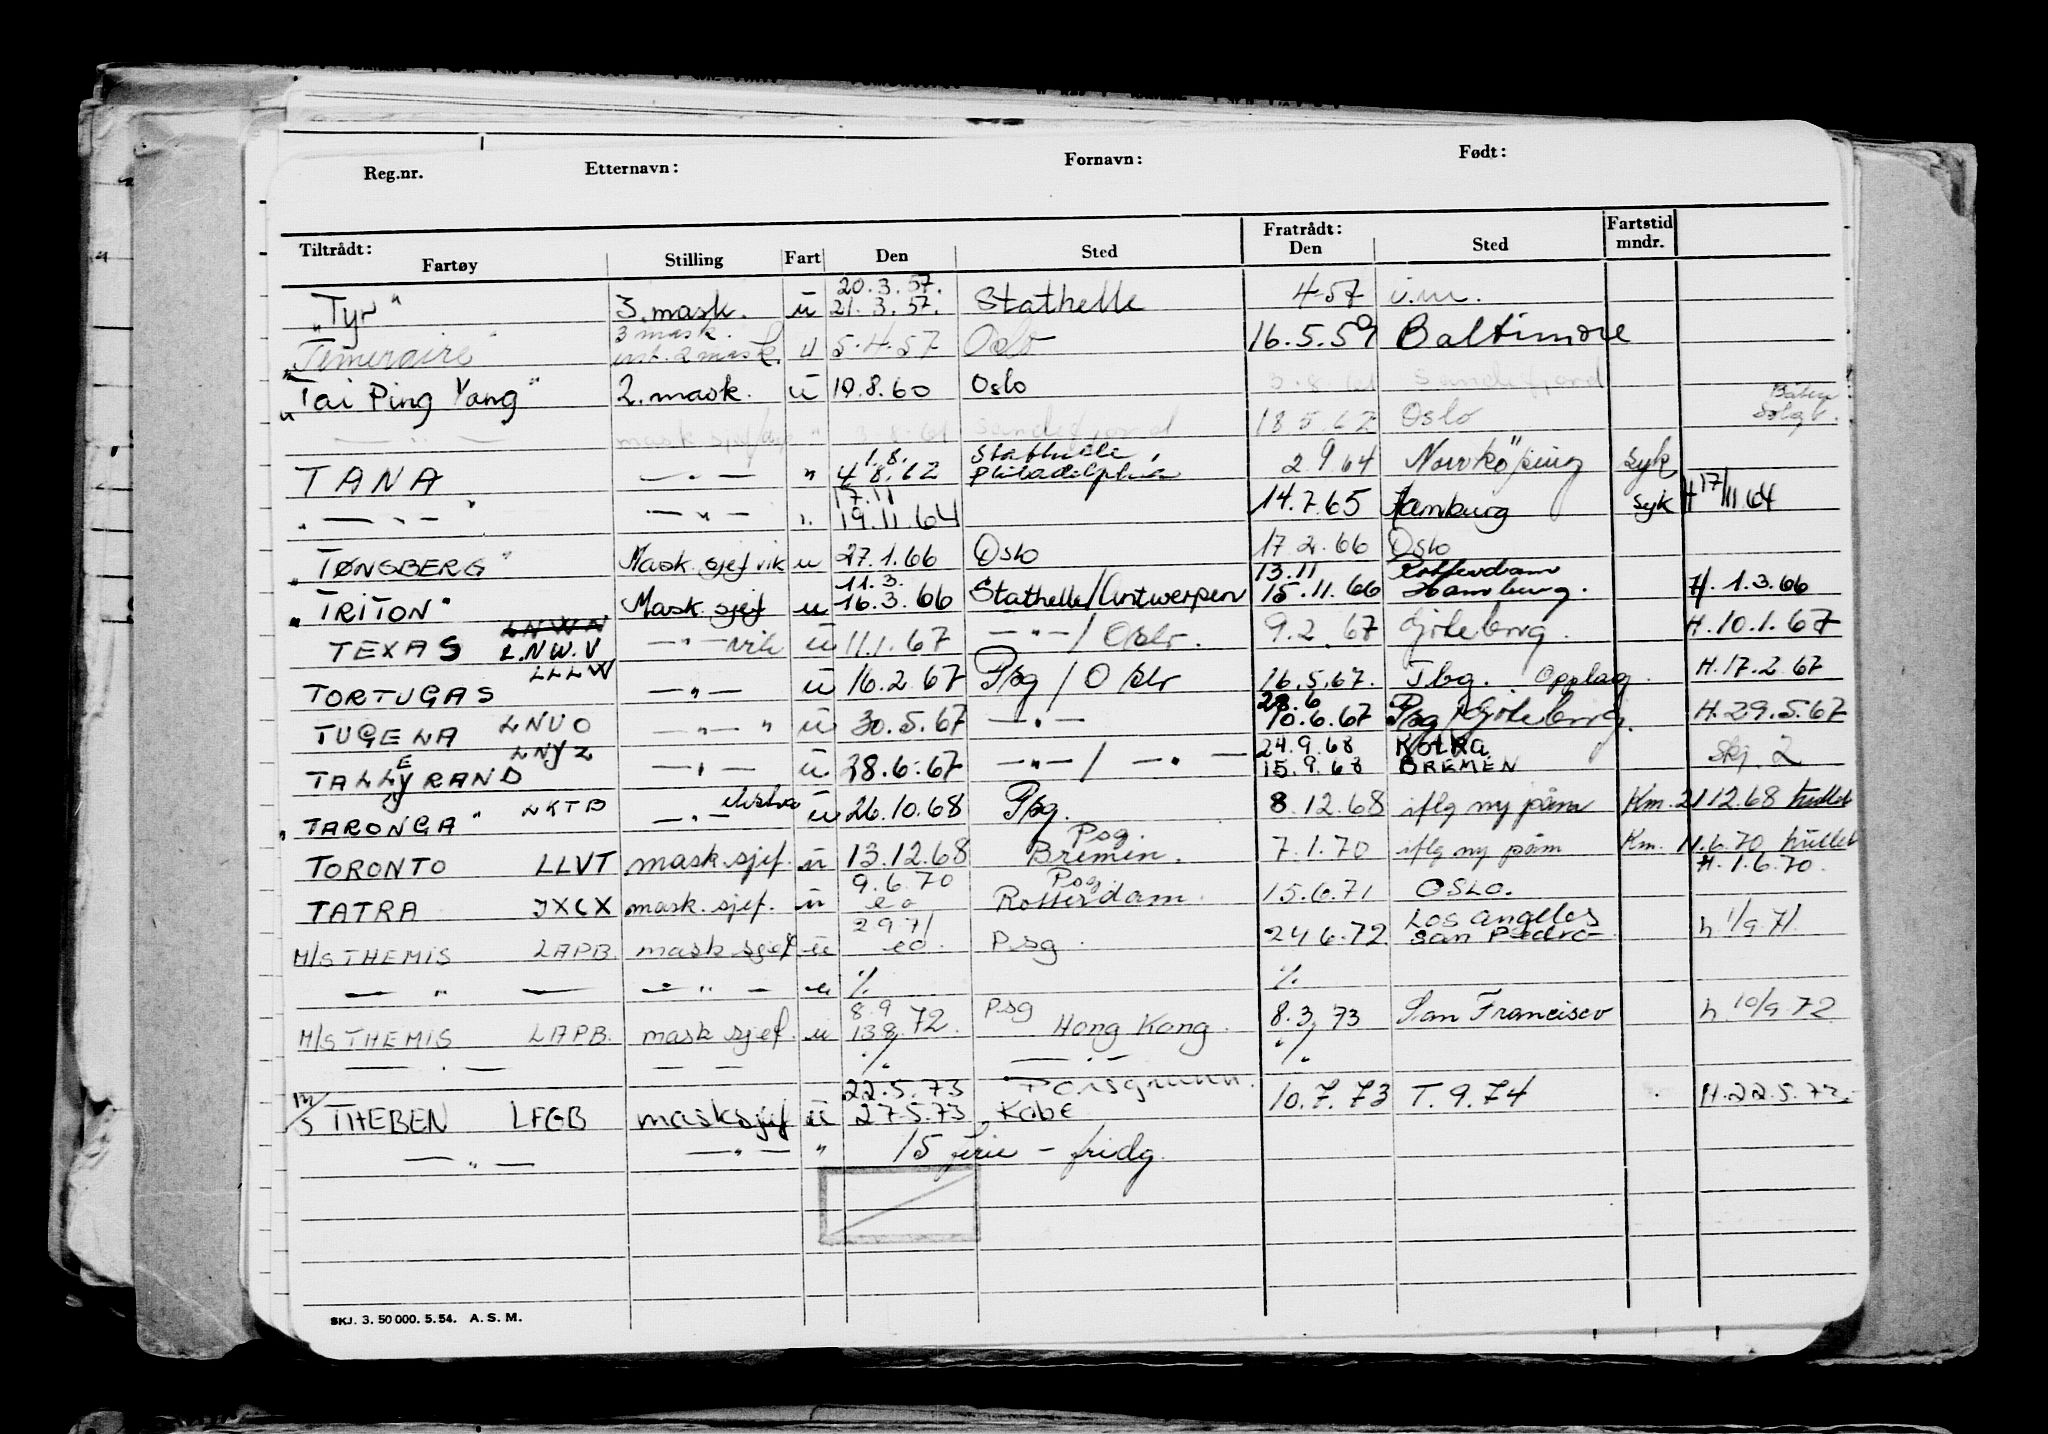 Reg.nr. Etternavn: Fornavn: Født:
Tiltrådt: Fratrådt: Fartstid
Fartøy Stilling Fart Den Sted Den Sted mndr.
20.3.57.
"Tyr" 3. mask. u 21.3.57. Stathelle 4-57 u.m.
3 mask.
"Temeraire" 2 mask. u 5.4.57 Oslo 16.5.59 Baltimore
"Tai Ping Yang" 2. mask. u 19.8.60 Oslo 3.8.61 Sandefjord
Båten
— " — mask sjef " 3.8.61 Sandefjord 18.5.62 Oslo Solgt.
1.8. Stathelle
TANA — " — " 4 8.62 Philadelphia 2.9.64 Norrköping Syk
17.11
" — " — " — " — ". 19.11.64 14.7.65 Hamburg syk H 17/11 64
"TØNSBERG" Mask. sjef vik u 27.1.66 Oslo 17.2.66 Oslo
11.3. 13.11 Rotterdam
"TRITON" Mask. sjef u 16.3.66 Stathelle/Antwerpen 15.11.66 Hamburg. H. 1.3.66
LNWN
TEXAS LNWV — " — vik u 11.1.67 — " — / Oslo. 9.2.67 Göteborg. H. 10.1.67
LLLW
TORTUGAS — " — u 16.2.67 Psg / Oslo 16.5.67. Tbg. Opplag. H. 17.2.67
28.6
TUGELA LNUO — " — " u 30.5.67 — " — 10.6.67 Psg/Göteborg. H. 29.5.67
LNYZ 24.9.68 KOTKA
TALLEYRAND — " — u 28.6.67 — " — / — " — 15.9.68 BREMEN Skj. 2
"TARONGA" LKTB — " — ekstra u 26.10.68 Psg. 8.12.68 iflg ny påm Km. 21 12.68 hullet
Psg.
TORONTO LLVT mask sjef. u 13.12.68 Bremen. 7.1.70 iflg ny påm Km. 11.6.70 hullet
9.6.70 Psg. H. 1.6.70.
TATRA JXCX mask. sjef. u eo Rotterdam. 15.6.71 OSLO.
2 9 71 LOS Angeles
M/S THEMIS LAPB. mask sjef u eo. Psg. 24 6.72 San Pedro h 1/9 71.
— " — — " — u %. %.
8.9 psg
M/S THEMIS LAPB. mask sjef. u 13 9.72. Hong Kong. 8.3.73 San Francisco h. 10/9 72
— " — — — %. — " — %.
22.5.73 Porsgrunn.
M/S THEBEN LFGB mask sjef u 27.5.73 Kobe 10.7.73 T. 9.74 H. 22.5.73.
— " — — " — " 15 ferie – fridg.
SKJ. 3. 50 000. 5. 54. A. S. M.